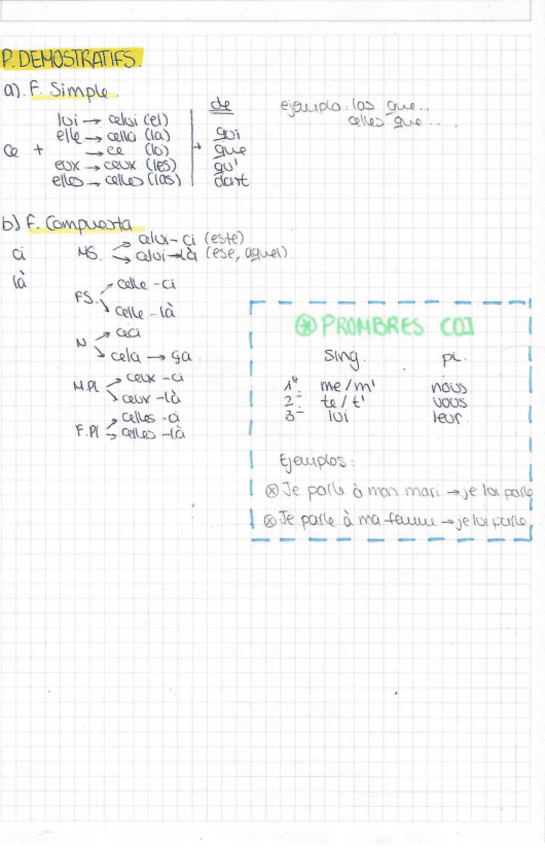 P. DEMOSTRATIFS.
a). F. Simple.
ce +
lui → celui (el)
elle → cella (la)
→ ce (lo)
eux → ceux (les)
elles → celles (las)
+
de
qui
que
qu'
dont
ejemplo: las que..
celles que ....
b) F. Compuesta
ci
là
MS. → celui-ci (este)
→ celui-là (ese, aquel)
FS. → celle-ci
→ celle-là
N → ceci
→ cela → ça.
M.Pl → ceux-ci
→ ceux-là
F.Pl → celles-ci
→ celles-là
⊛ PROMBRES COI
Sing. pl.
1ª me/m' nous
2ª te/t' vous
3ª lui leur.
Ejemplos:
⊗ Je parle à mon mari → je lui parle
⊗ Je parle à ma femme → je lui parle